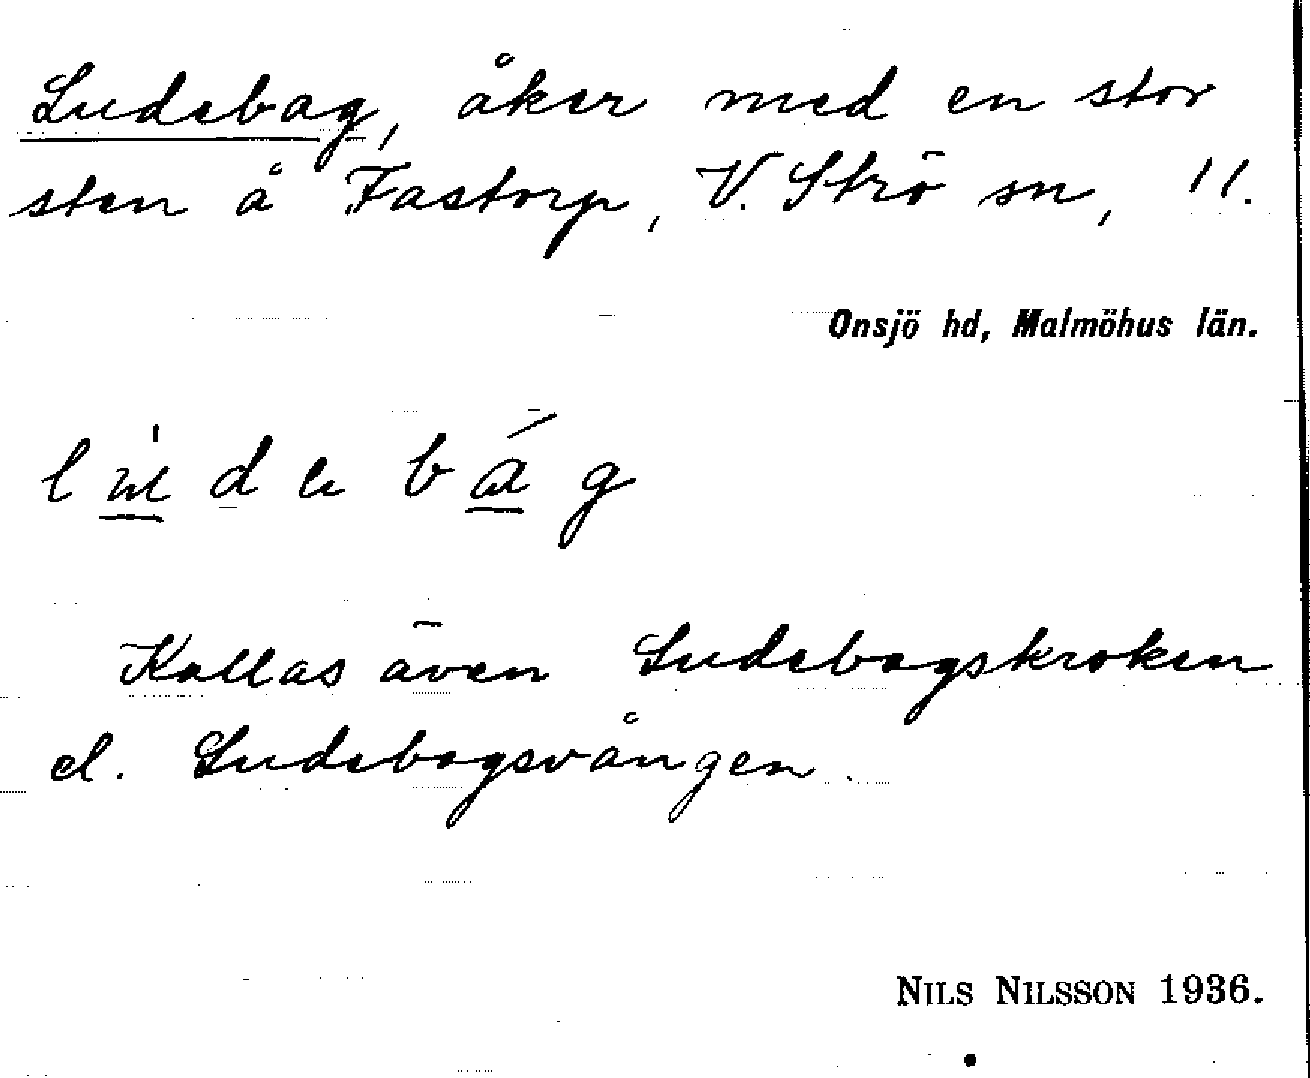 Ludebag, åker med en stor
sten å Fastorp, V. Strö sn, 11.
Onsjö hd, Malmöhus län.
Kallas även Ludebagskroken
el. Ludebagsvången.
NILS NILSSON 1936.